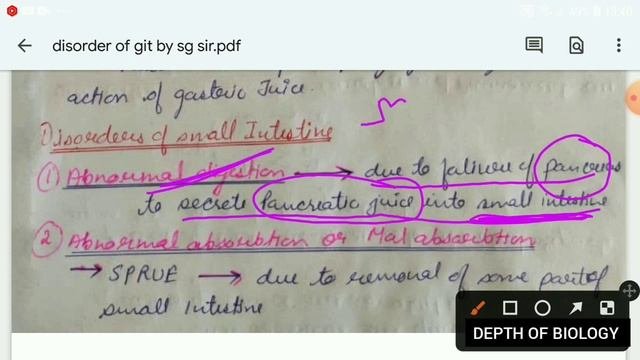 49% 15:40
disorder of git by sg sir.pdf
action of gasteric Juice.
Disorders of small Intestine
① Abnormal digestion → due to failure of pancreas
to secrete Pancreatic juice into small intestine
② Abnormal absorbtion or Mal absorbtion
→ SPRUE → due to removal of some part of
small intestine
DEPTH OF BIOLOGY